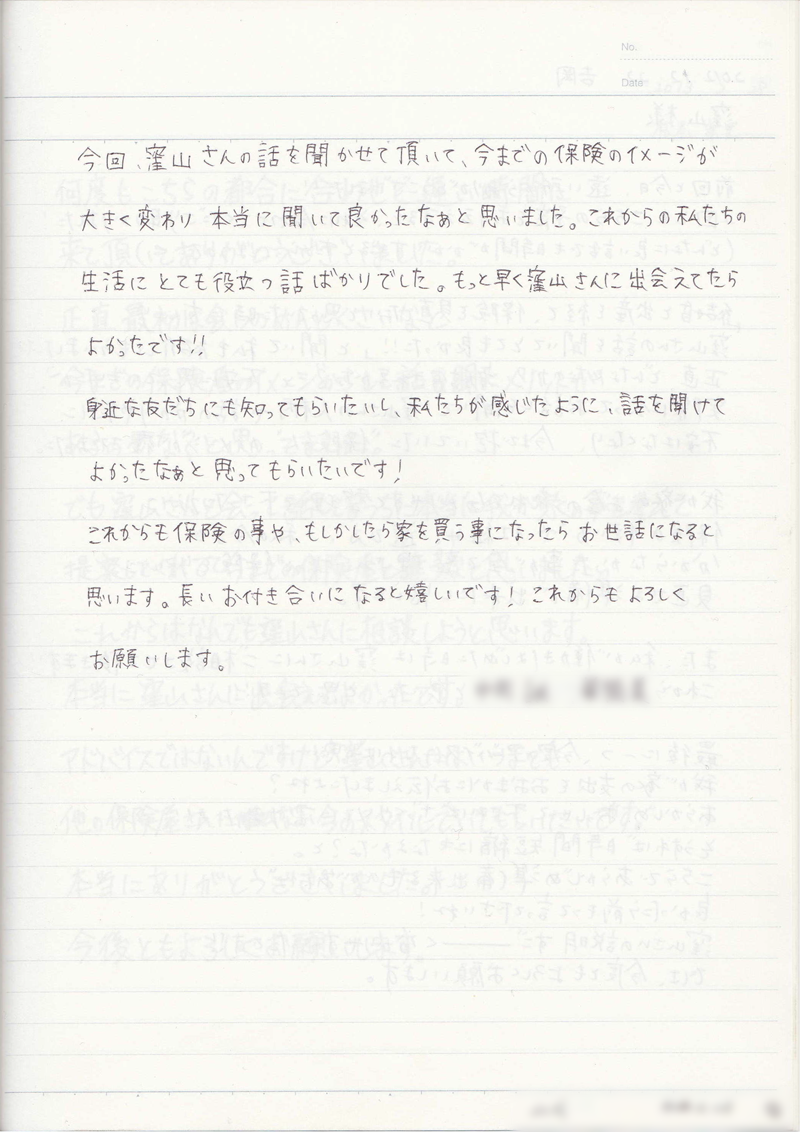 No.
Date
今回、窪山さんの話を聞かせて頂いて、今までの保険のイメージが
大きく変わり 本当に聞いて良かったなぁと思いました。これからの私たちの
生活に とても役立つ話ばかりでした。もっと早く窪山さんに出会えてたら
よかったです!!
身近な友だちにも知ってもらいたいし、私たちが感じたように、話を聞けて
よかったなぁと思ってもらいたいです!
これからも保険の事や、もしかしたら家を買う事になったら お世話になると
思います。長い お付き合いに なると嬉しいです! これからも よろしく
お願いします。